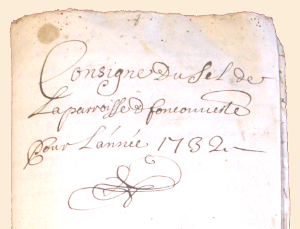 Consigne Du sel de
La parroisse d foncouverte
Pour L'année 1732